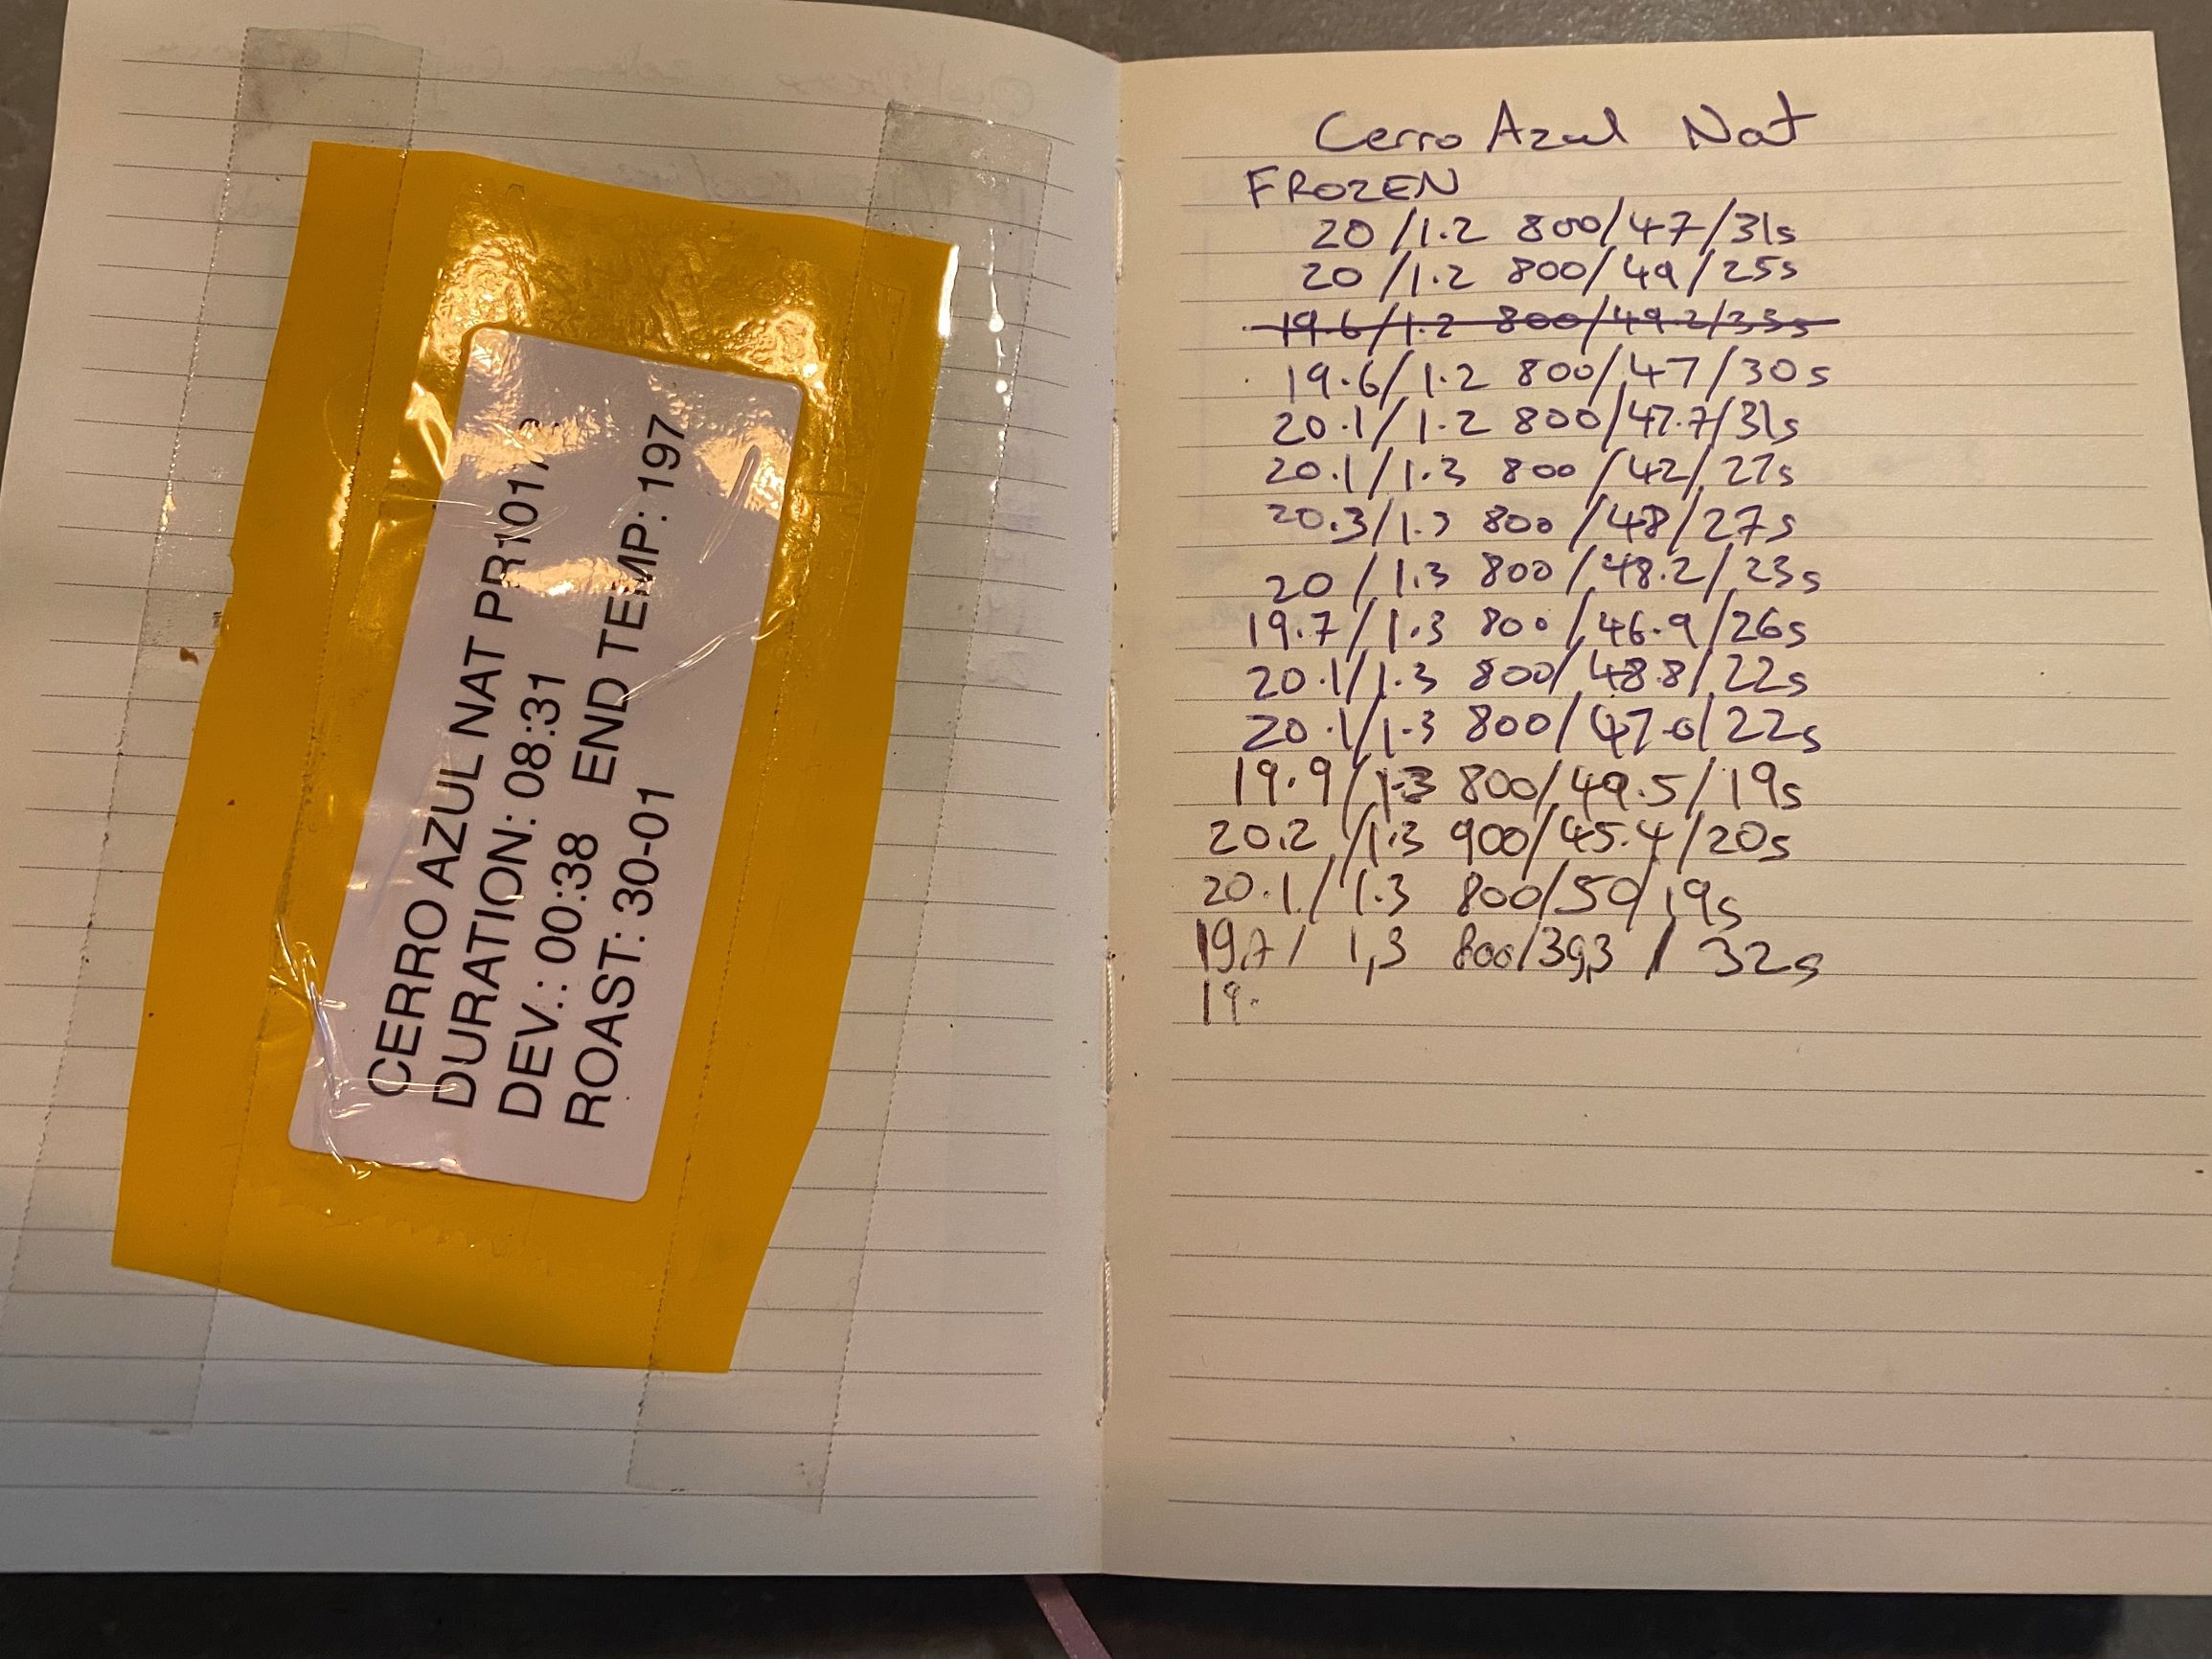 CERRO AZUL NAT
DURATION: 08:31
DEV.: 00:38 END TEMP: 197
ROAST: 30-01
Cerro Azul Nat
FROZEN
20/1.2 800/47/31s
20/1.2 800/49/25s
19.6/1.2 800/49.2/33s
19.6/1.2 800/47/30s
20.1/1.2 800/47.7/31s
20.1/1.3 800/42/27s
20.3/1.3 800/48/27s
20/1.3 800/48.2/23s
19.7/1.3 800/46.9/26s
20.1/1.3 800/48.8/22s
20.1/1.3 800/47.6/22s
19.9/1.3 800/49.5/19s
20.2/1.3 900/45.4/20s
20.1/1.3 800/50/19s
19,7/1,3 800/39,3/32s
19.